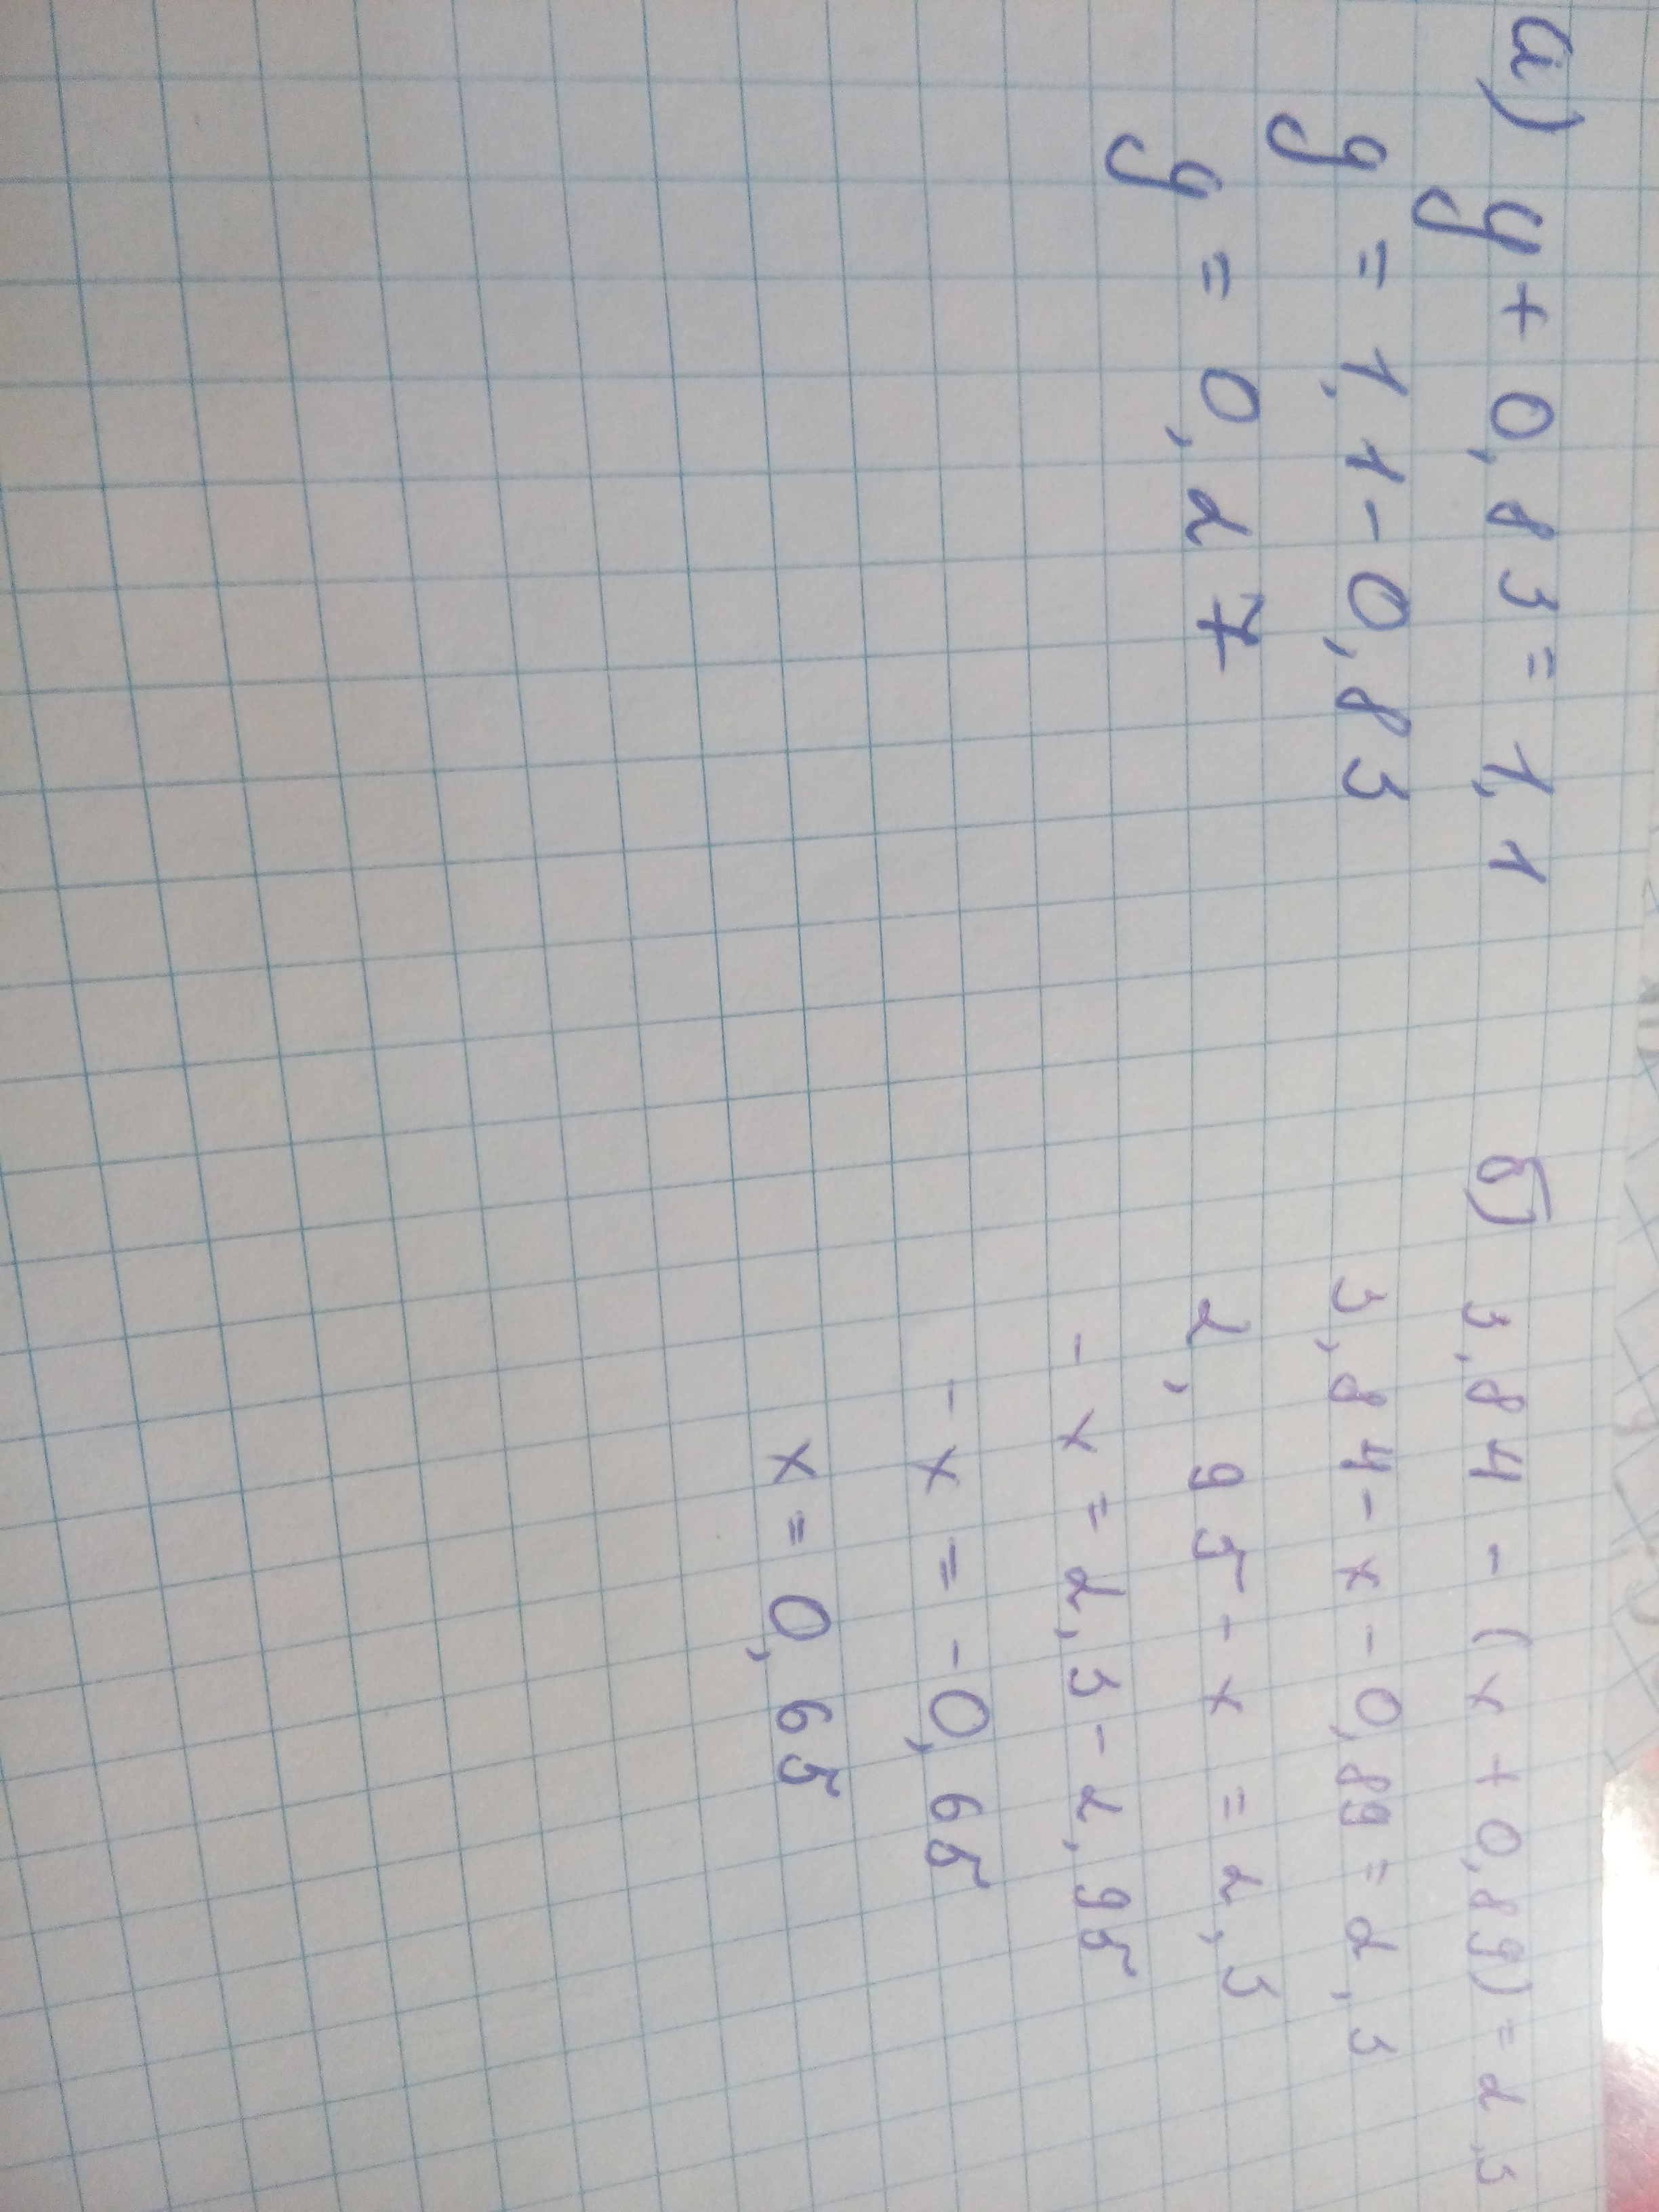 а) y + 0,83 = 1,1
y = 1,1 - 0,83
y = 0,27
б) 3,84 - (x + 0,89) = 2,3
3,84 - x - 0,89 = 2,3
2,95 - x = 2,3
- x = 2,3 - 2,95
- x = -0,65
x = 0,65